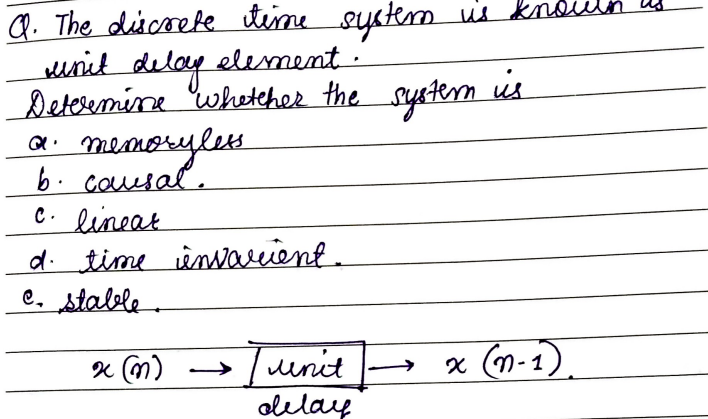 Q. The discrete time system is known as
unit delay element.
Determine whether the system is
a. memoryless
b. causal.
c. linear
d. time invarient.
e. stable.
x(n) → unit → x(n-1).
delay